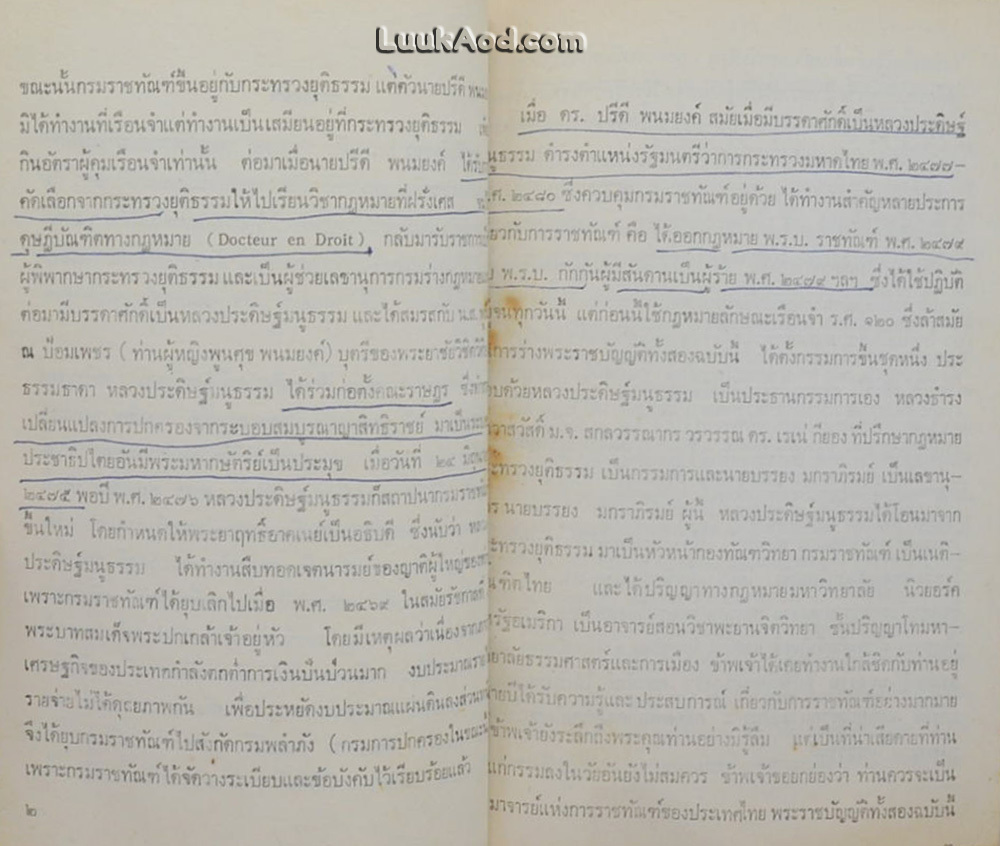 LuukAod.com
ขณะนั้นกรมราชทัณฑ์ขึ้นอยู่กับกระทรวงยุติธรรม แต่ตัวนายปรีดี พนม
มิได้ทำงานที่เรือนจำแต่ทำงานเป็นเสมียนอยู่ที่กระทรวงยุติธรรม
กินอัตราผู้คุมเรือนจำเท่านั้น ต่อมาเมื่อนายปรีดี พนมยงค์ ได้รับ
คัดเลือกจากกระทรวงยุติธรรมให้ไปเรียนวิชากฎหมายที่ฝรั่งเศส
ดุษฎีบัณฑิตทางกฎหมาย (Docteur en Droit) กลับมารับราชการ
ผู้พิพากษากระทรวงยุติธรรม และเป็นผู้ช่วยเลขานุการกรมร่างกฎหมาย
ต่อมามีบรรดาศักดิ์เป็นหลวงประดิษฐ์มนูธรรม และได้สมรสกับ น.ส.
ณ ป้อมเพชร (ท่านผู้หญิงพูนศุข พนมยงค์) บุตรีของพระยาชัยวิชิต
ธรรมธาดา หลวงประดิษฐ์มนูธรรม ได้ร่วมก่อตั้งคณะราษฎร
เปลี่ยนแปลงการปกครองจากระบอบสมบูรณาญาสิทธิราชย์ มาเป็น
ประชาธิปไตยอันมีพระมหากษัตริย์เป็นประมุข เมื่อวันที่ ๒๔
๒๔๗๕ พอปี พ.ศ. ๒๔๗๖ หลวงประดิษฐ์มนูธรรมก็สถาปนากรมราชทัณ
ขึ้นใหม่ โดยกำหนดให้พระยาฤทธิ์อาคเนย์เป็นอธิบดี ซึ่งนับว่า
ประดิษฐ์มนูธรรม ได้ทำงานสืบทอดเจตนารมย์ของญาติผู้ใหญ่
เพราะกรมราชทัณฑ์ได้ยุบเลิกไปเมื่อ พ.ศ. ๒๔๖๙ ในสมัยรัชกาลที่
พระบาทสมเด็จพระปกเกล้าเจ้าอยู่หัว โดยมีเหตุผลว่าเนื่องจาก
เศรษฐกิจของประเทศกำลังตกต่ำการเงินปั่นป่วนมาก งบประมาณ
รายจ่ายไม่ได้ดุลยภาพกัน เพื่อประหยัดงบประมาณแผ่นดินลงส่วน
จึงได้ยุบกรมราชทัณฑ์ไปสังกัดกรมพลำภัง (กรมการปกครองในขณะ
เพราะกรมราชทัณฑ์ได้จัดวางระเบียบและข้อบังคับไว้เรียบร้อยแล้ว
๒
เมื่อ ดร. ปรีดี พนมยงค์ สมัยเมื่อมีบรรดาศักดิ์เป็นหลวงประดิษฐ์
นูธรรม ดำรงตำแหน่งรัฐมนตรีว่าการกระทรวงมหาดไทย พ.ศ. ๒๔๗๗-
ศ. ๒๔๘๐ ซึ่งควบคุมกรมราชทัณฑ์อยู่ด้วย ได้ทำงานสำคัญหลายประการ
ยวกับการราชทัณฑ์ คือ ได้ออกกฎหมาย พ.ร.บ. ราชทัณฑ์ พ.ศ. ๒๔๗๙
พ.ร.บ. กักกันผู้มีสันดานเป็นผู้ร้าย พ.ศ. ๒๔๗๙ ฯลฯ ซึ่งได้ใช้ปฏิบัติ
จนทุกวันนี้ แต่ก่อนนี้ใช้กฎหมายลักษณะเรือนจำ ร.ศ. ๑๒๐ ซึ่งล้าสมัย
การร่างพระราชบัญญัติทั้งสองฉบับนี้ ได้ตั้งกรรมการขึ้นชุดหนึ่ง ประ
อบด้วยหลวงประดิษฐ์มนูธรรม เป็นประธานกรรมการเอง หลวงธำรง
วาสวัสดิ์ ม.จ. สกลวรรณากร วรวรรณ ดร. เรเน่ กียอง ที่ปรึกษากฎหมาย
ะทรวงยุติธรรม เป็นกรรมการและนายบรรยง มกราภิรมย์ เป็นเลขานุ-
ร นายบรรยง มกราภิรมย์ ผู้นี้ หลวงประดิษฐ์มนูธรรมได้โอนมาจาก
ะทรวงยุติธรรม มาเป็นหัวหน้ากองทัณฑวิทยา กรมราชทัณฑ์ เป็นเนติ-
ณฑิตไทย และได้ปริญญาทางกฎหมายมหาวิทยาลัย นิวยอร์ค
รัฐอเมริกา เป็นอาจารย์สอนวิชาพะยานจิตวิทยา ชั้นปริญญาโทมหา-
ยาลัยธรรมศาสตร์และการเมือง ข้าพเจ้าได้เคยทำงานใกล้ชิดกับท่านอยู่
ลายปีได้รับความรู้และประสบการณ์ เกี่ยวกับการราชทัณฑ์อย่างมากมาย
ข้าพเจ้ายังระลึกถึงพระคุณท่านอย่างมิรู้ลืม แต่เป็นที่น่าเสียดายที่ท่าน
แก่กรรมลงในวัยอันยังไม่สมควร ข้าพเจ้าขอยกย่องว่า ท่านควรจะเป็น
มาจารย์แห่งการราชทัณฑ์ของประเทศไทย พระราชบัญญัติทั้งสองฉบับนี้